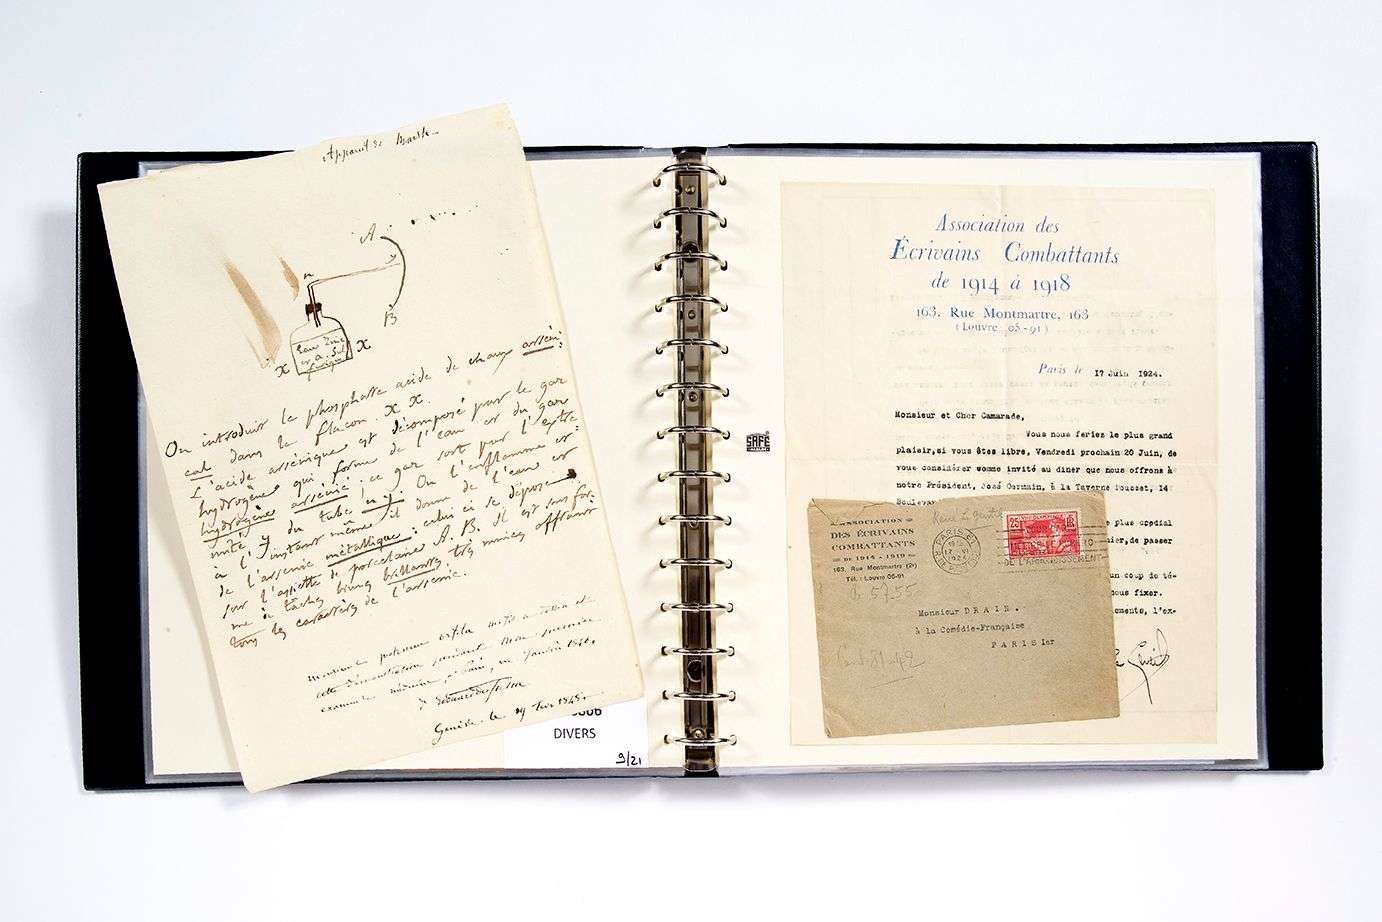 Appareil de Marsh
A
B
x
x
Eau Zinc
et a. Sul
furique
On introduit le phosphate acide de chaux arséni:
cal dans le flacon. x x.
L'acide arsénique est décomposé par le gaz
hydrogène qui forme de l'eau et du gaz
hydrogène arsénié: ce gaz sort par l'extré
mité y du tube n y. On l'enflamme et
à l'instant même il donne de l'eau et
de l'arsenic métallique: celui ci se dépose
sur l'assiette de porcelaine A. B. Il est sous for-
me de tâches brunes brillantes très minces offrant
tous les caractères de l'arsenic.
cette démonstration suivant mon premier
examen de médecine, à Paris, en Janvier
Genève le 19 1845.
DIVERS
9/21
SAFE
Association des
Écrivains Combattants
de 1914 à 1918
163, Rue Montmartre, 163
(Louvre 05-91)
Paris le 17 Juin 1924.
Monsieur et Cher Camarade,
Vous nous feriez le plus grand
plaisir, si vous êtes libre, Vendredi prochain 20 Juin, de
vous considérer comme invité au diner que nous offrons à
notre Président, José Germain, à la Taverne Pousset, 14
Boulevar
plus
ier, de passer
un coup de té-
nous fixer.
ments, l'ex-
ASSOCIATION
DES ÉCRIVAINS
COMBATTANTS
DE 1914 - 1919
163, Rue Montmartre (2e)
Tél. : Louvre 05-91
PARIS
17
1924
25
DE L'AFFRANCHISSEMENT
57.55
81-42
Monsieur DRAIN.
à la Comédie-Française
PARIS 1er